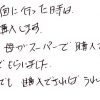 回に行った時は
購入します。
母がスーパーで購入で
でもらいました。
でも購入できればうれ